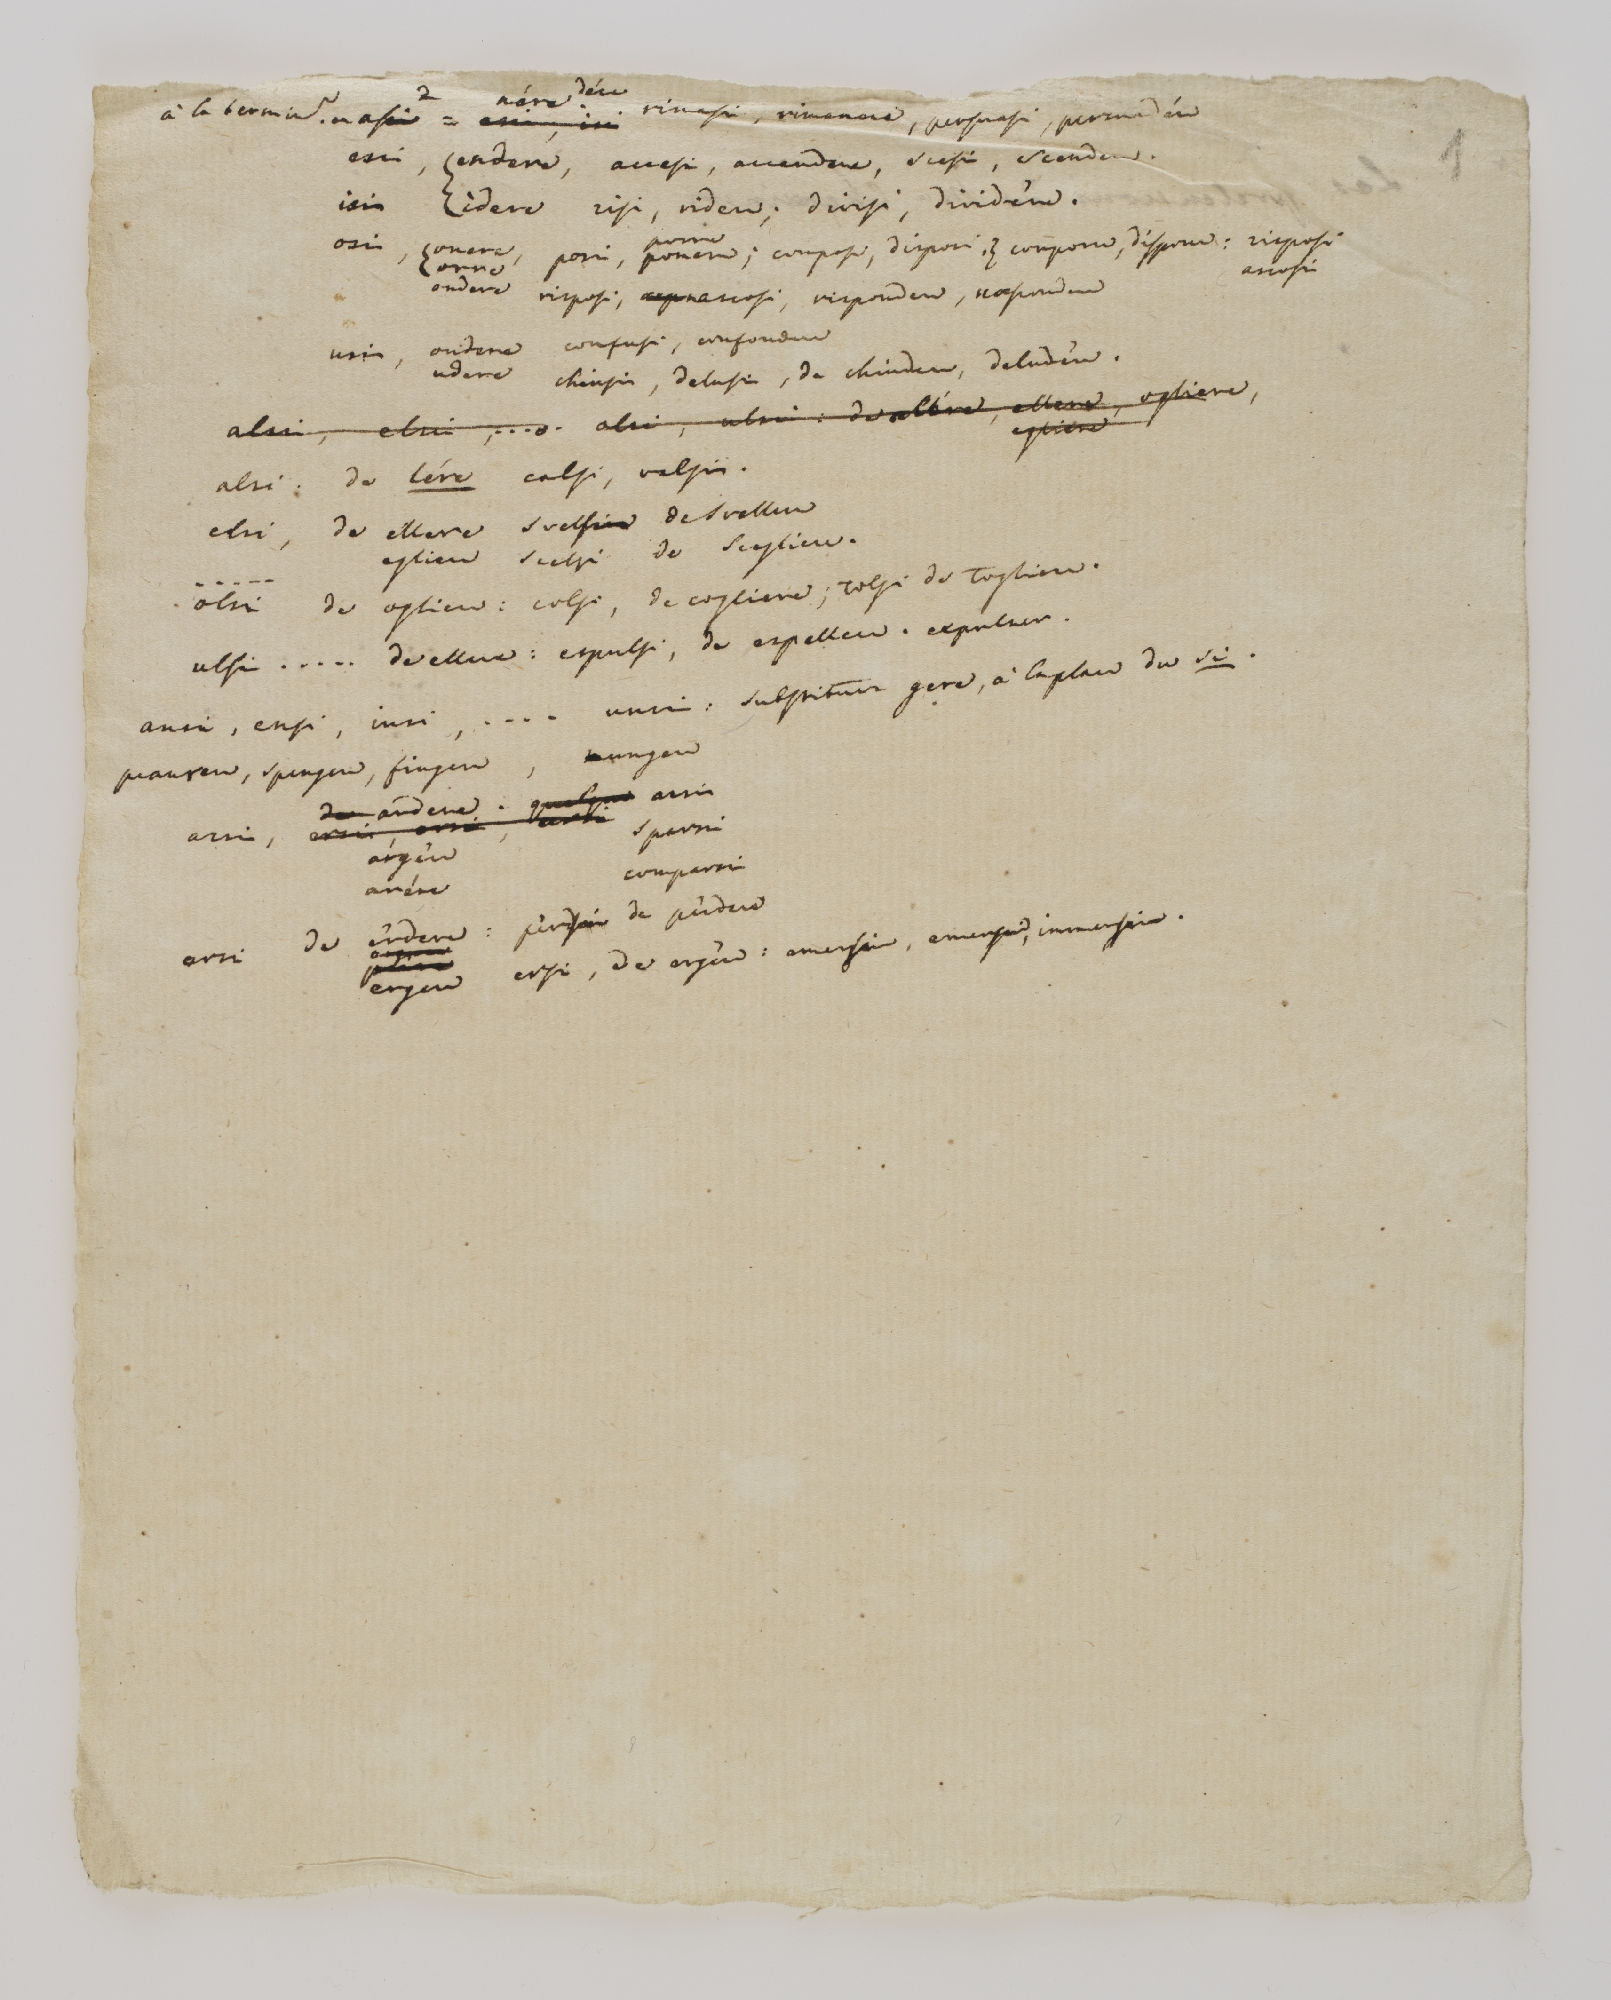 1
à la termin. uasi = nére dére rimasi, rimanere, persuasi, persuadére
esi, {endere, accesi, accendere, scesi, scendere.
isi {idere risi, ridere; divisi, dividére.
osi, {onere, posi, ponere; composi, disposi, comporre, disporre: risposi
{orre porre ascosi
ondere risposi, nascosi, rispondere, nascondere
usi, ondere confusi, confondere
udere chiusi, delusi, de chiudere, deludére.
alsi, elsi, .... olsi, ulsi: de allére, ellere, ogliere,
egliere
alsi: de lére calsi, valsi.
elsi, de ellere svelsi de svellere
egliere scelsi de scegliere.
.....
olsi de ogliere: colsi, de cogliere; tolsi de togliere.
ulsi ..... de ellere: espulsi, de espellere. expulser.
ansi, ensi, insi, .... unsi: substituer gere, à la place du si.
piangere, spengere, fingere, mungere
arsi, de ardere. arsi
ersi, orsi,
argére sparsi
arére comparsi
ersi de érdere: persi de pérdere
ergere ersi, de ergére: emersi, emerger, immersi.